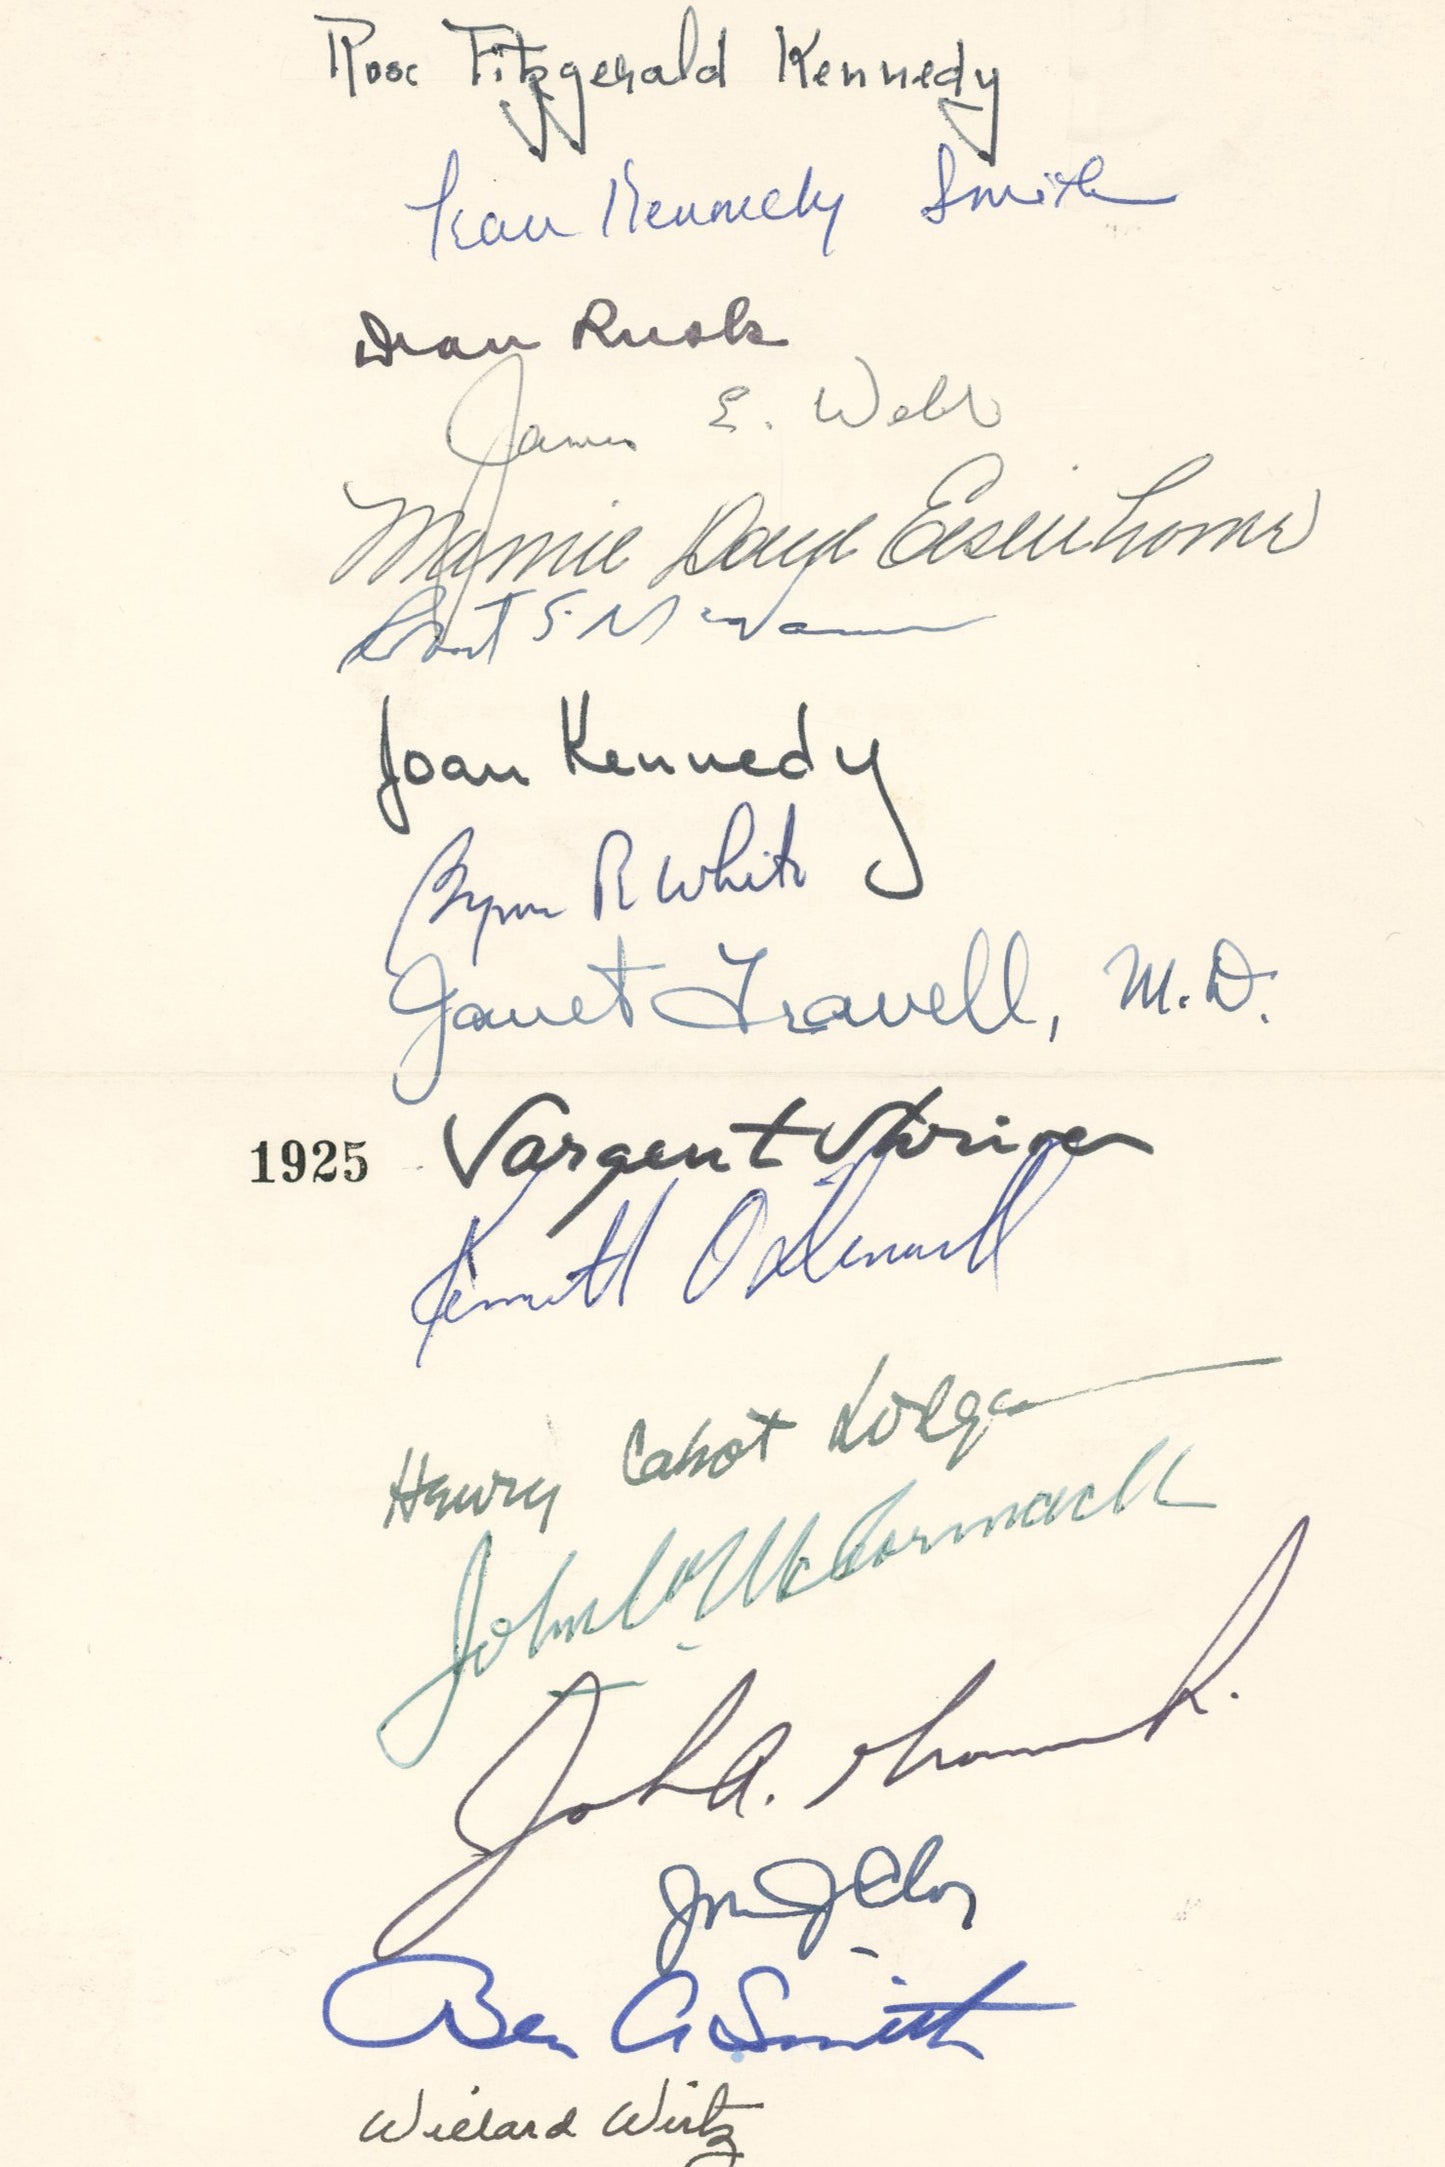 Rose Fitzgerald Kennedy
Jean Kennedy Smith
Dean Rusk
James E. Webb
Mamie Doud Eisenhower
Robert S. McNamara
Joan Kennedy
Byron R White
Janet Travell, M.D.
1925 Sargent Shriver
Kenneth O'Donnell
Henry Cabot Lodge
John W. McCormack
John A.
John J
Ben A Smith
Willard Wirtz